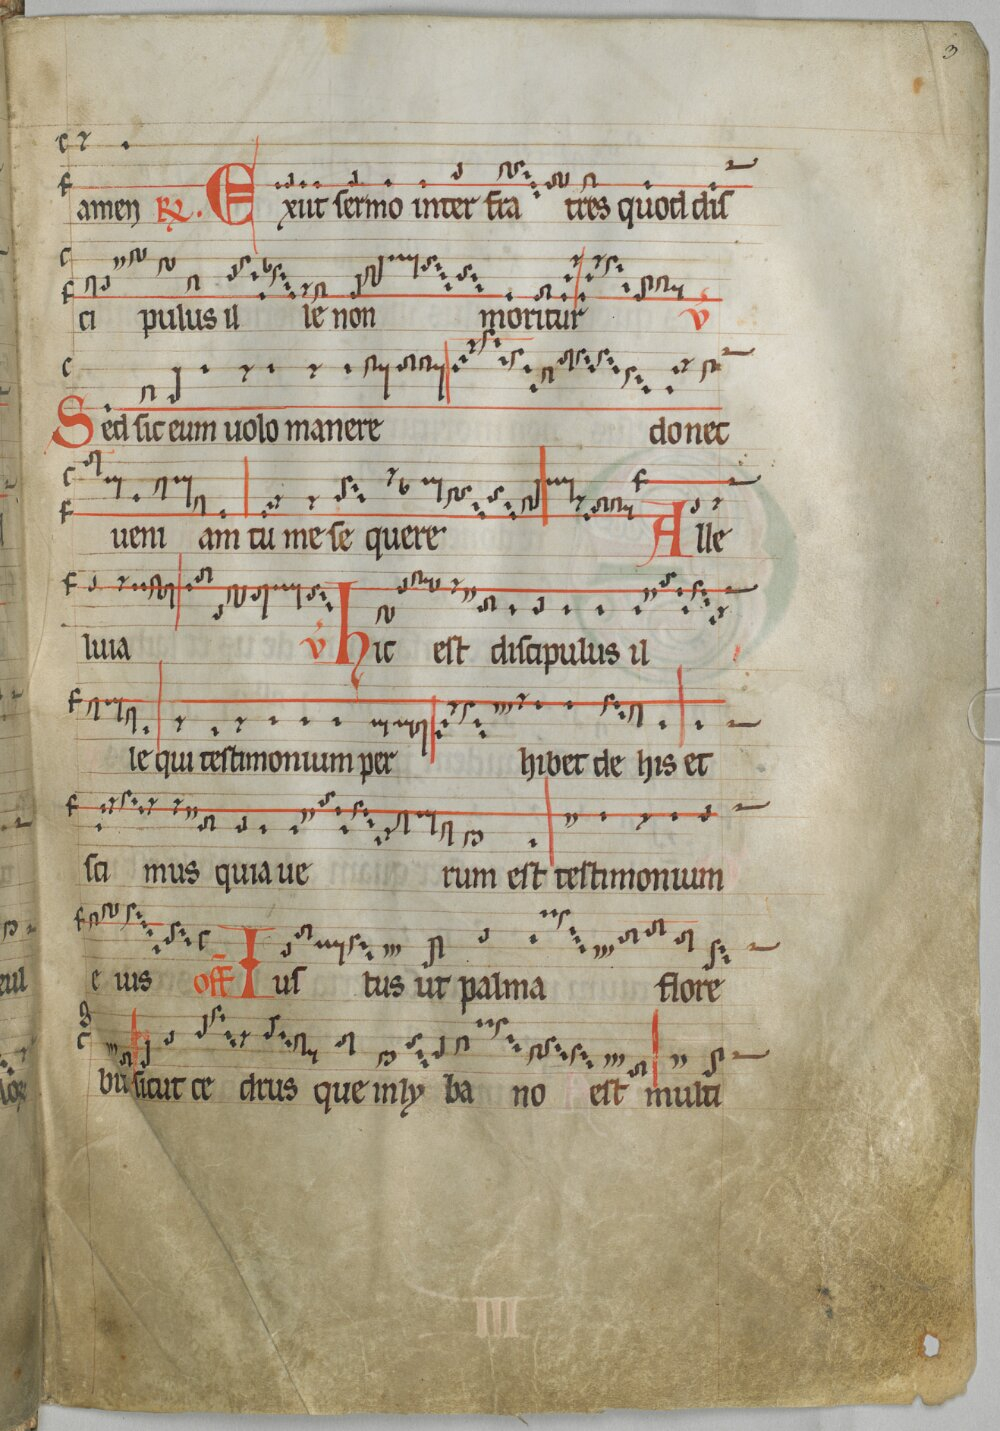 3
amen R. Exiit sermo inter fra tres quod dis
ci pulus il le non moritur v
Sed sic eum uolo manere donec
ueni am tu me se quere Alle
luia v hic est discipulus il
le qui testimonium per hibet de his et
sci mus quia ue rum est testimonium
e ius off Ius tus ut palma flore
bit sicut ce drus que in ly ba no est multi
III